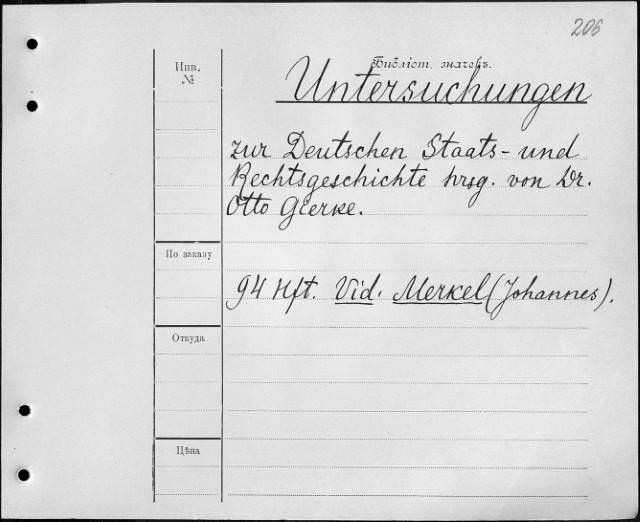 206
Инв.
№
Библіот. значекъ.
Untersuchungen
zur Deutschen Staats- und
Rechtsgeschichte hrsg. von Dr.
Otto Gierke.
По заказу
94 Hft. Vid. Merkel (Johannes).
Откуда
Цѣна